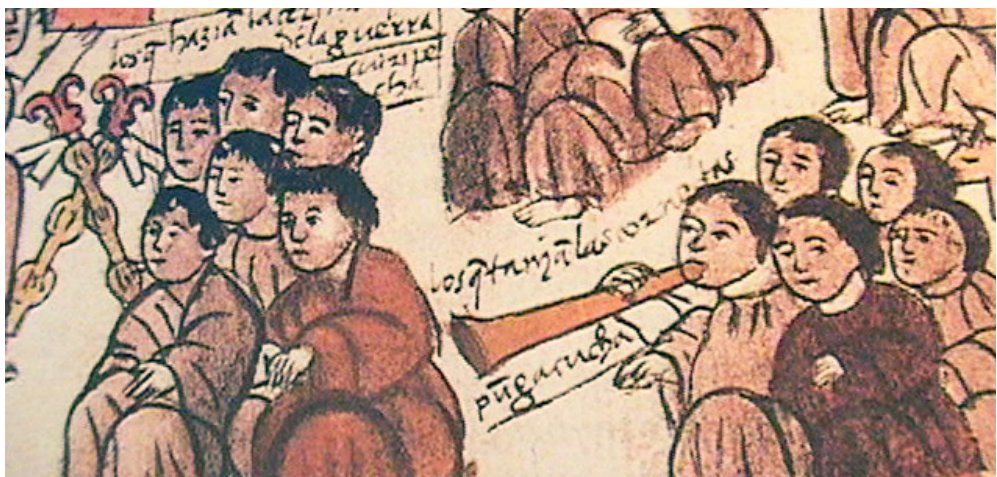 los q̃ haziã la
de la guerra
curizipe
cha
los q̃ tanjã las cornetas
pũgacucha